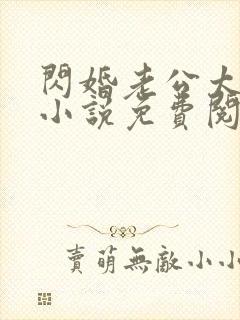 閃婚老公大
小說免費閱
賣萌無敵小小